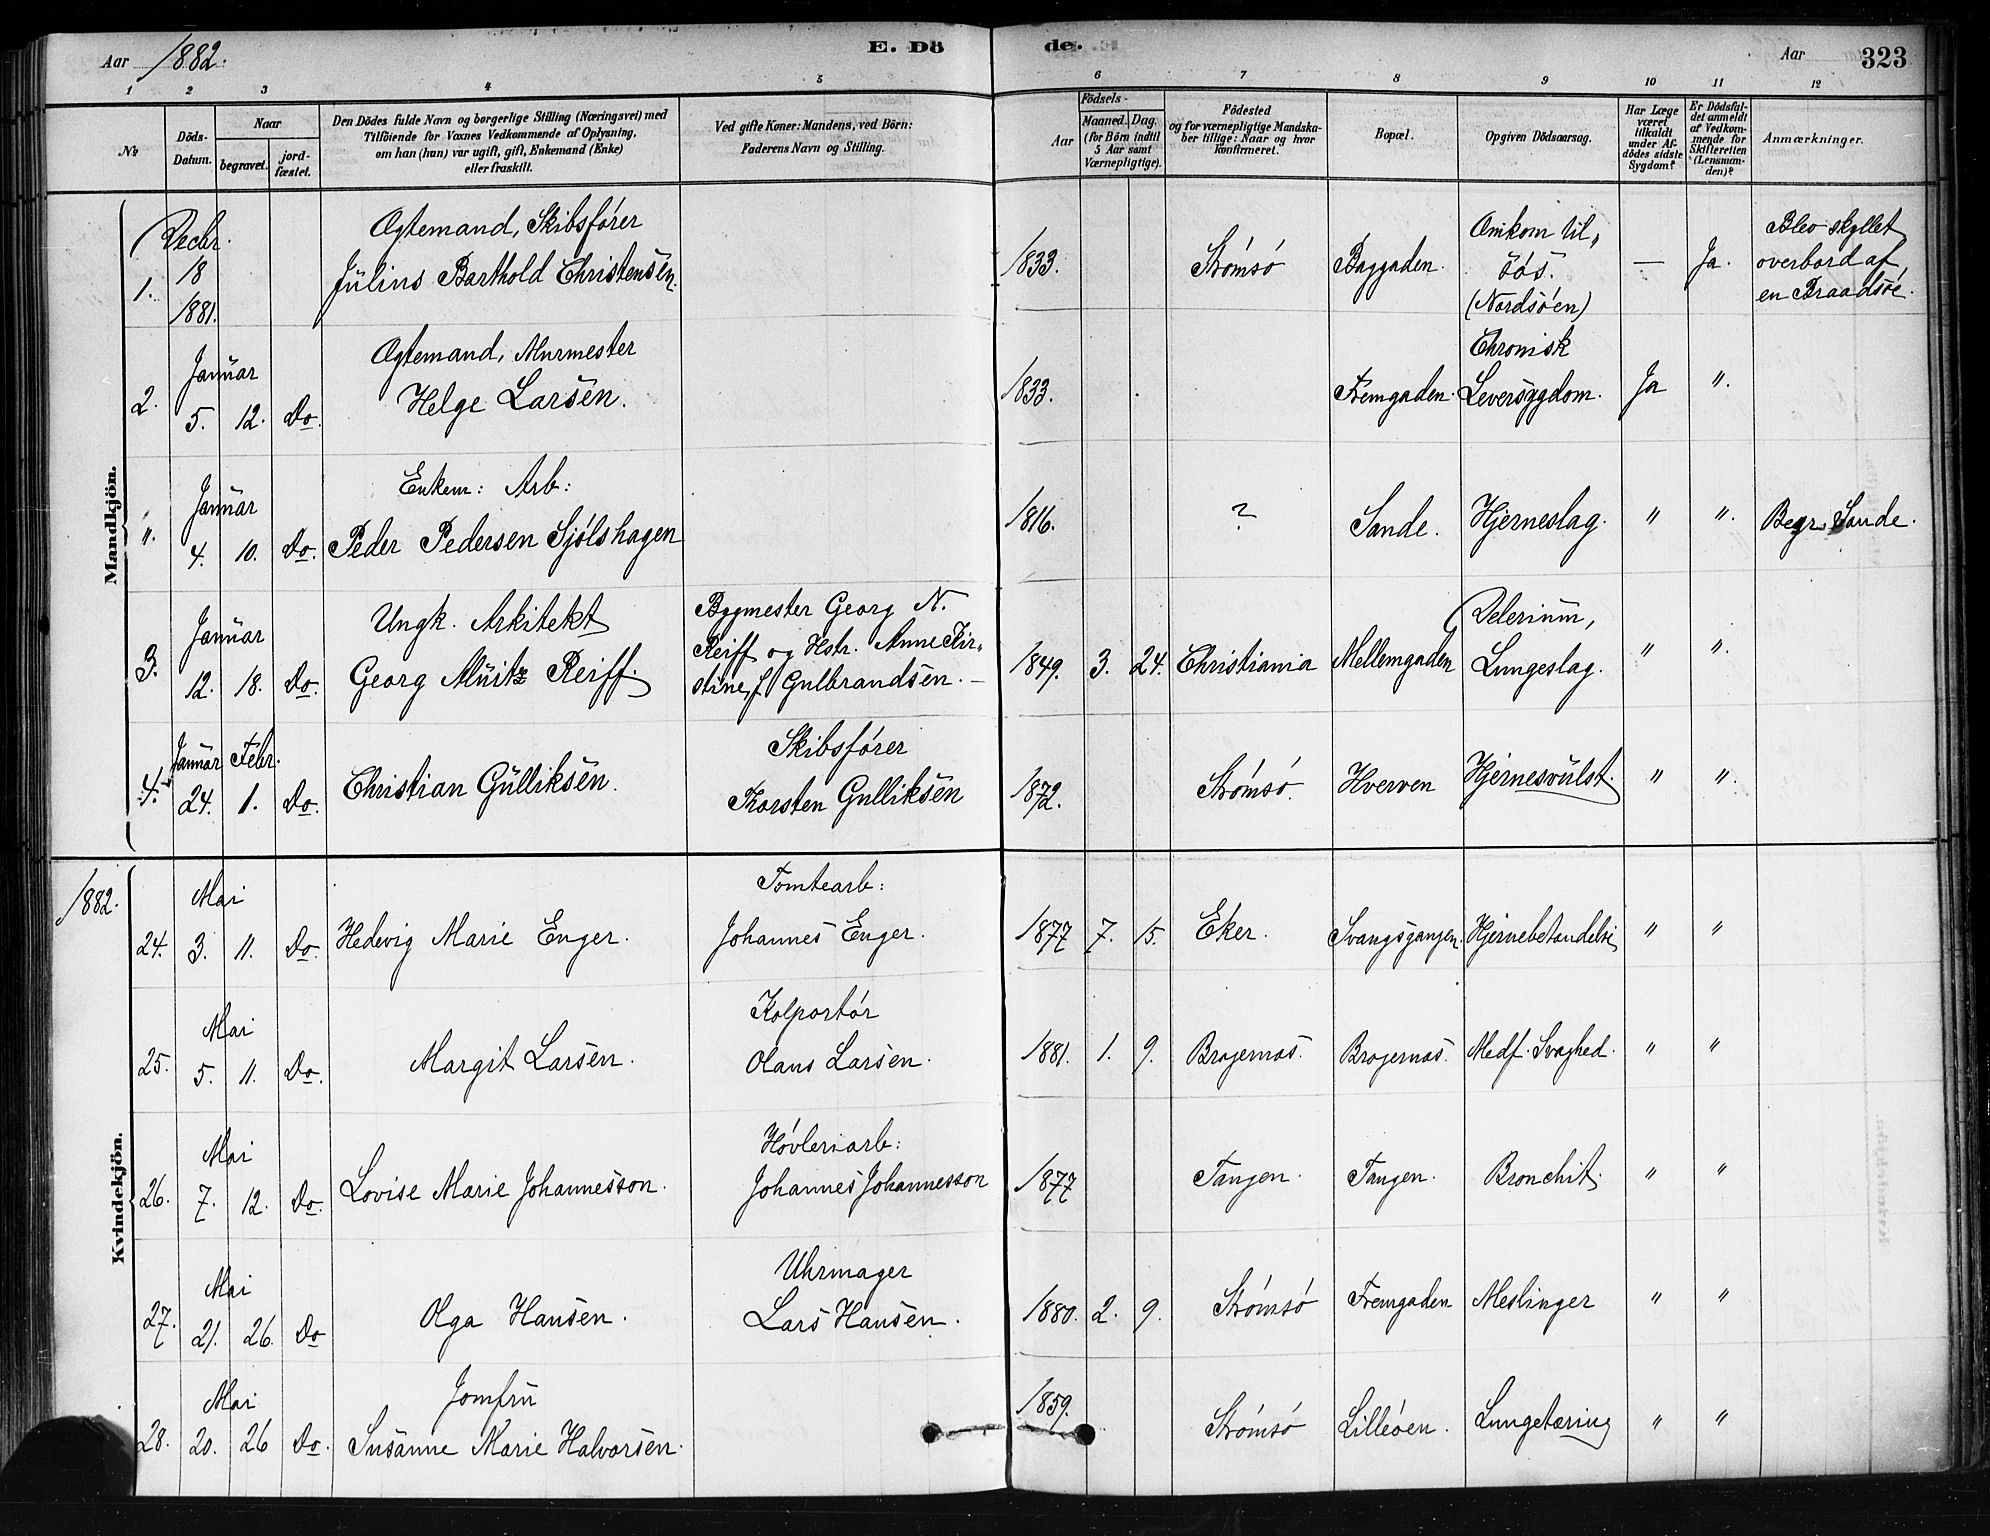 Aar 1882.
E. Dö
de.
Aar
323
1 2 3 4 5 6 7 8 9 10 11 12
No
Döds-Datum.
Naar
begravet.
jord-fæstet.
Den Dödes fulde Navn og borgerlige Stilling (Næringsvei) med
Tilföiende for Voxnes Vedkommende af Oplysning,
om han (hun) var ugift, gift, Enkemand (Enke)
eller fraskilt.
Ved gifte Koner: Mandens, ved Börn:
Faderens Navn og Stilling.
Födsels-
Aar
Maaned. Dag.
(for Börn indtil
5 Aar samt
Værnepligtige).
Födested
og for værnepligtige Mandska-
ber tillige: Naar og hvor
konfirmeret.
Bopæl.
Opgiven Dödsaarsag.
Har Læge
været
tilkaldt
under Af-
dödes sidste
Sygdom?
Er Dödsfal-
det anmeldt
af Vedkom-
mende for
Skifteretten
(Lensman-
den)?
Anmærkninger.
Mandkjön.
1. Decbr. 18 1881.
Ægtemand, Skibsfører
Julius Barthold Christensen.
1833. Strømsø Baggaden.
Omkom til
søs.
(Nordsøen)
— Ja.
Blev skyllet
overbord af
en Braadsøe.
2. Januar 5. 12. Do.
Ægtemand, Murmester
Helge Larsen.
1833. Fremgaden.
Chronisk
Leversygdom. Ja ".
". Januar 4. 10. Do.
Enkem: Arb:
Peder Pedersen Sjølshagen
1816. ? Sande. Hjerneslag. " ". Begr. Sande.
3. Januar 12. 18. Do.
Ungk. Arkitekt
Georg Müritz Reiff.
Bygmester Georg N.
Reiff og Hstr. Anne Kir-
stine f. Gulbrandsen.
1849. 3. 24. Christiania Mellemgaden
Delerium,
Lungeslag. " ".
4. Januar 24. Febr. 1. Do.
Christian Gulliksen.
Skibsfører
Thorsten Gulliksen
1872. Strømsø. Hverven Hjernesvulst. " ".
1882.
Kvindekjön.
24. Mai 3. 11. Do. Hedevig Marie Enger.
Tomtearb:
Johannes Enger.
1877 7. 15. Eker. Svangsgangen. Hjernebetændelse " "
25. Mai 5. 11. Do. Margit Larsen.
Kolportør
Olaus Larsen.
1881. 1. 9. Bragernæs. Bragernæs. Medf. Svaghed. " "
26. Mai 7. 12. Do. Lovise Marie Johannesson.
Høvleriarb:
Johannes Johannesson
1877 Tangen. Tangen. Bronchit. " "
27. Mai 21. 26. Do Olga Hansen.
Uhrmager
Lars Hansen.
1880. 2. 9. Strømsø Fremgaden Meslinger " "
28. Mai 20. 26 Do.
Jomfru
Susanne Marie Halvorsen.
1859. Strømsø Lilleøen. Lungetæring " "